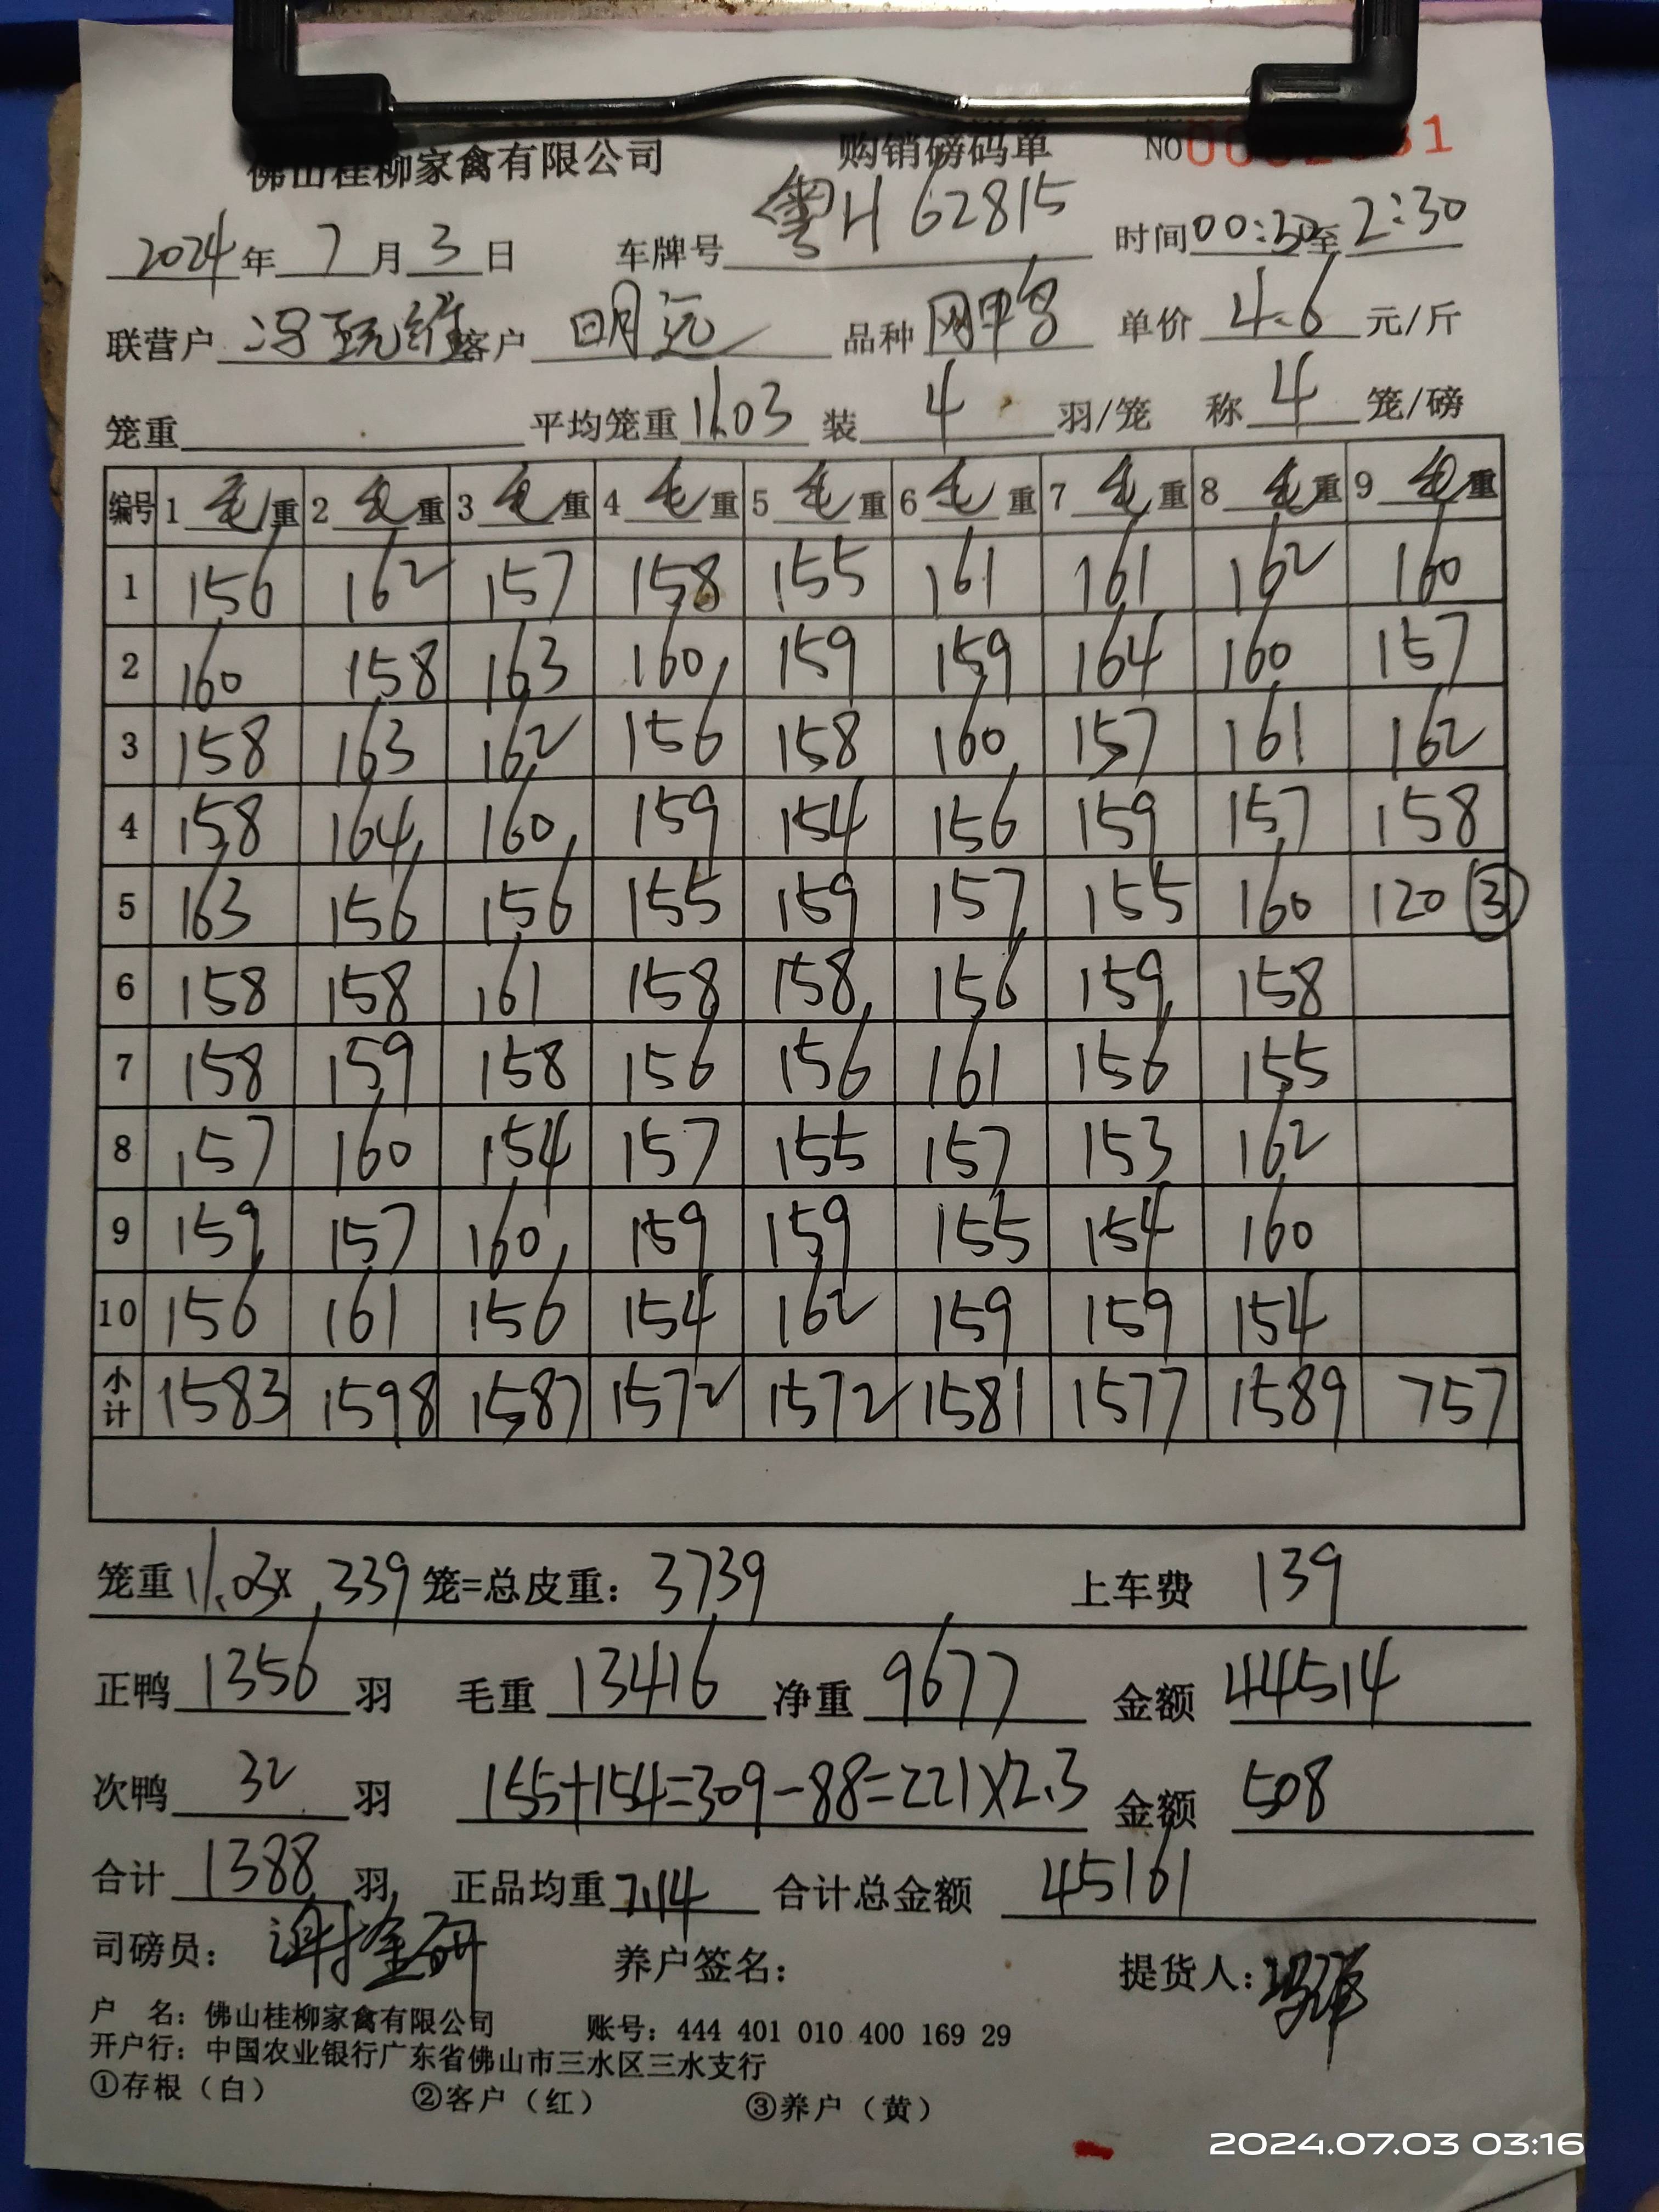 佛山桂柳家禽有限公司 购销磅码单 NO
2024年7月3日 车牌号 粤H62815 时间00:30至2:30
联营户 冯甄维 客户 明远 品种 网甲鸟 单价 4.6 元/斤
笼重 平均笼重 11.03 装 4 羽/笼 称 4 笼/磅
编号 1 毛重 2 毛重 3 毛重 4 毛重 5 毛重 6 毛重 7 毛重 8 毛重 9 毛重
1 156 162 157 158 155 161 161 162 160
2 160 158 163 160 159 159 164 160 157
3 158 163 162 156 158 160 157 161 162
4 158 164 160 159 154 156 159 157 158
5 163 156 156 155 159 157 155 160 120 ③
6 158 158 161 158 158 156 159 158
7 158 159 158 156 156 161 156 155
8 157 160 154 157 155 157 153 162
9 159 157 160 159 159 155 154 160
10 156 161 156 154 162 159 159 154
小计 1583 1598 1587 1572 1572 1581 1577 1589 757
笼重 11.03x 339 笼=总皮重: 3739 上车费 139
正鸭 1356 羽 毛重 13416 净重 9677 金额 44514
次鸭 32 羽 155+154=309-88=221X2.3 金额 508
合计 1388 羽 正品均重 7.14 合计总金额 45161
司磅员: 养户签名: 提货人:
户 名: 佛山桂柳家禽有限公司 账号: 444 401 010 400 169 29
开户行: 中国农业银行广东省佛山市三水区三水支行
①存根（白） ②客户（红） ③养户（黄）
2024.07.03 03:16